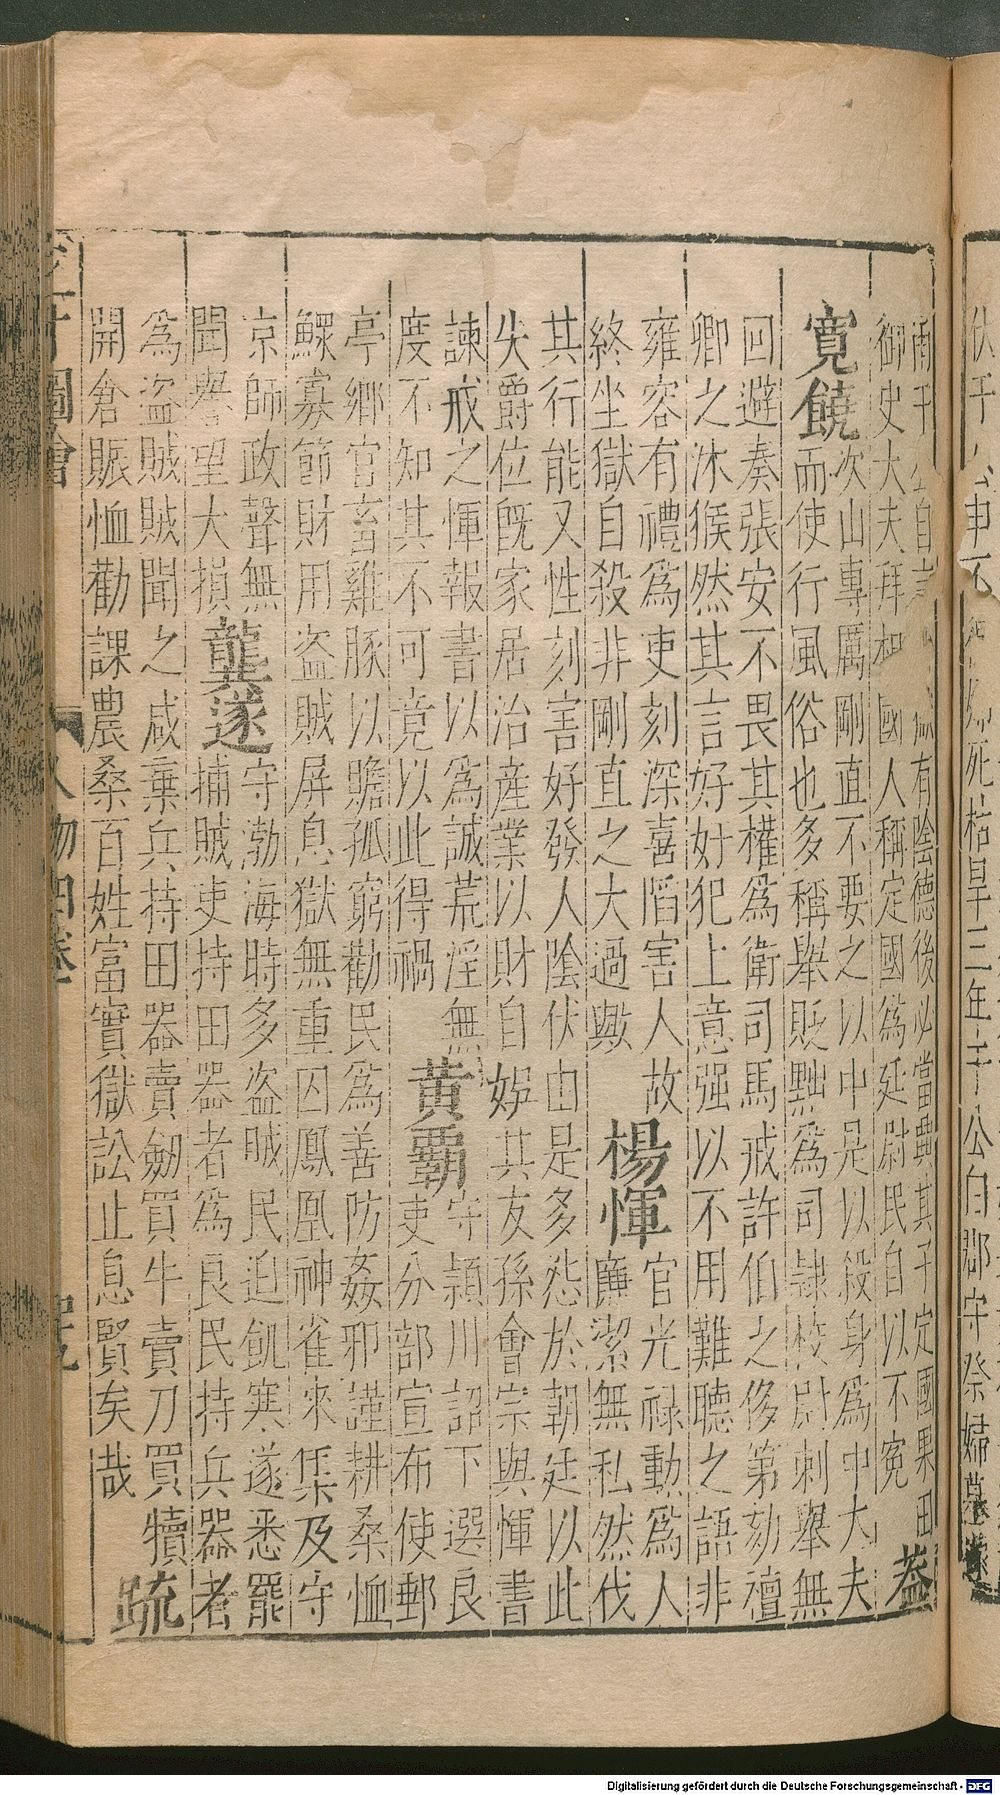 雨于公自言 有陰德後必當興其子定國果田
御史大夫拜相國人稱定國為廷尉民自以不寃 蓋
寛饒次山專厲剛直不要之以中是以殺身為中大夫
而使行風俗也多稱舉貶黜為司隷校尉刺舉無
回避奏張安不畏其權為衛司馬戒許伯之侈第劾檀
卿之沐猴然其言好好犯上意强以不用難聽之語非
雍容有禮為吏刻深喜䧟害人故 楊惲 官光祿勳為人
終坐獄自殺非剛直之大過歟 廉潔無私然伐
其行能又性刻害好發人陰伏由是多怨於朝廷以此
失爵位旣家居治產業以財自娛其友孫會宗與惲書
諫戒之惲報書以為誠荒淫無 黃霸 守頴川詔下選良
度不知其不可竟以此得禍 吏分部宣布使郵
亭鄉官畜雞豚以贍孤窮勸民為善防姦邪謹耕桑恤
鰥寡節財用盜賊屏息獄無重囚鳳凰神雀來集及守
京師政聲無 龔遂 守渤海時多盜賊民迫飢寒遂悉罷
聞譽望大損 捕賊吏持田器者為良民持兵器者
為盜賊賊聞之咸棄兵持田器賣劒買牛賣刀買犢 䟽
開倉賑恤勸課農桑百姓富實獄訟止息賢矣哉
圖會
人物四卷
伏于公爭不 死枯旱三年于公白郡守祭婦墓遂
Digitalisierung gefördert durch die Deutsche Forschungsgemeinschaft - DFG